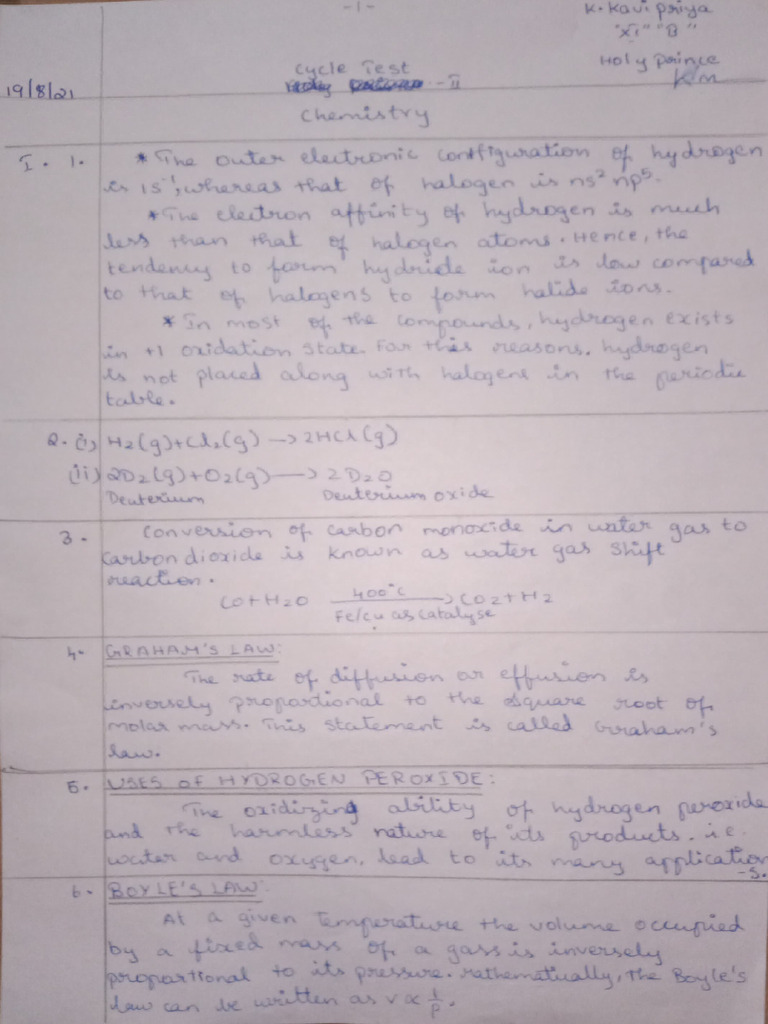 -1-
K. Kavi priya
"XI" "B"
Holy prince
19/8/21
Cycle Test
- II
Chemistry
I. 1. * The outer electronic configuration of hydrogen
is 1s¹, whereas that of halogen is ns² np⁵.
* The electron affinity of hydrogen is much
less than that of halogen atoms. Hence, the
tendency to form hydride ion is low compared
to that of halogens to form halide ions.
* In most of the compounds, hydrogen exists
in +1 oxidation state. For this reasons. hydrogen
is not placed along with halogens in the periodic
table.
2. (i) H₂(g)+Cl₂(g) → 2HCl(g)
(ii) 2D₂(g)+O₂(g) → 2D₂O
Deuterium Deuterium oxide
3. Conversion of carbon monoxide in water gas to
Carbon dioxide is known as water gas shift
reaction.
400°C
CO+H₂O → CO₂+H₂
Fe/Cu as catalyse
4. GRAHAM'S LAW:
The rate of diffusion or effusion is
inversely proportional to the square root of
molar mass. This statement is called Graham's
law.
5. USES OF HYDROGEN PEROXIDE:
The oxidizing ability of hydrogen peroxide
and the harmless nature of its products. i.e.
water and oxygen, lead to its many application
-s.
6. BOYLE'S LAW:
At a given temperature the volume occupied
by a fixed mass of a gass is inversely
proportional to its pressure. Mathematically, the Boyle's
law can be written as V ∝ 1/P.